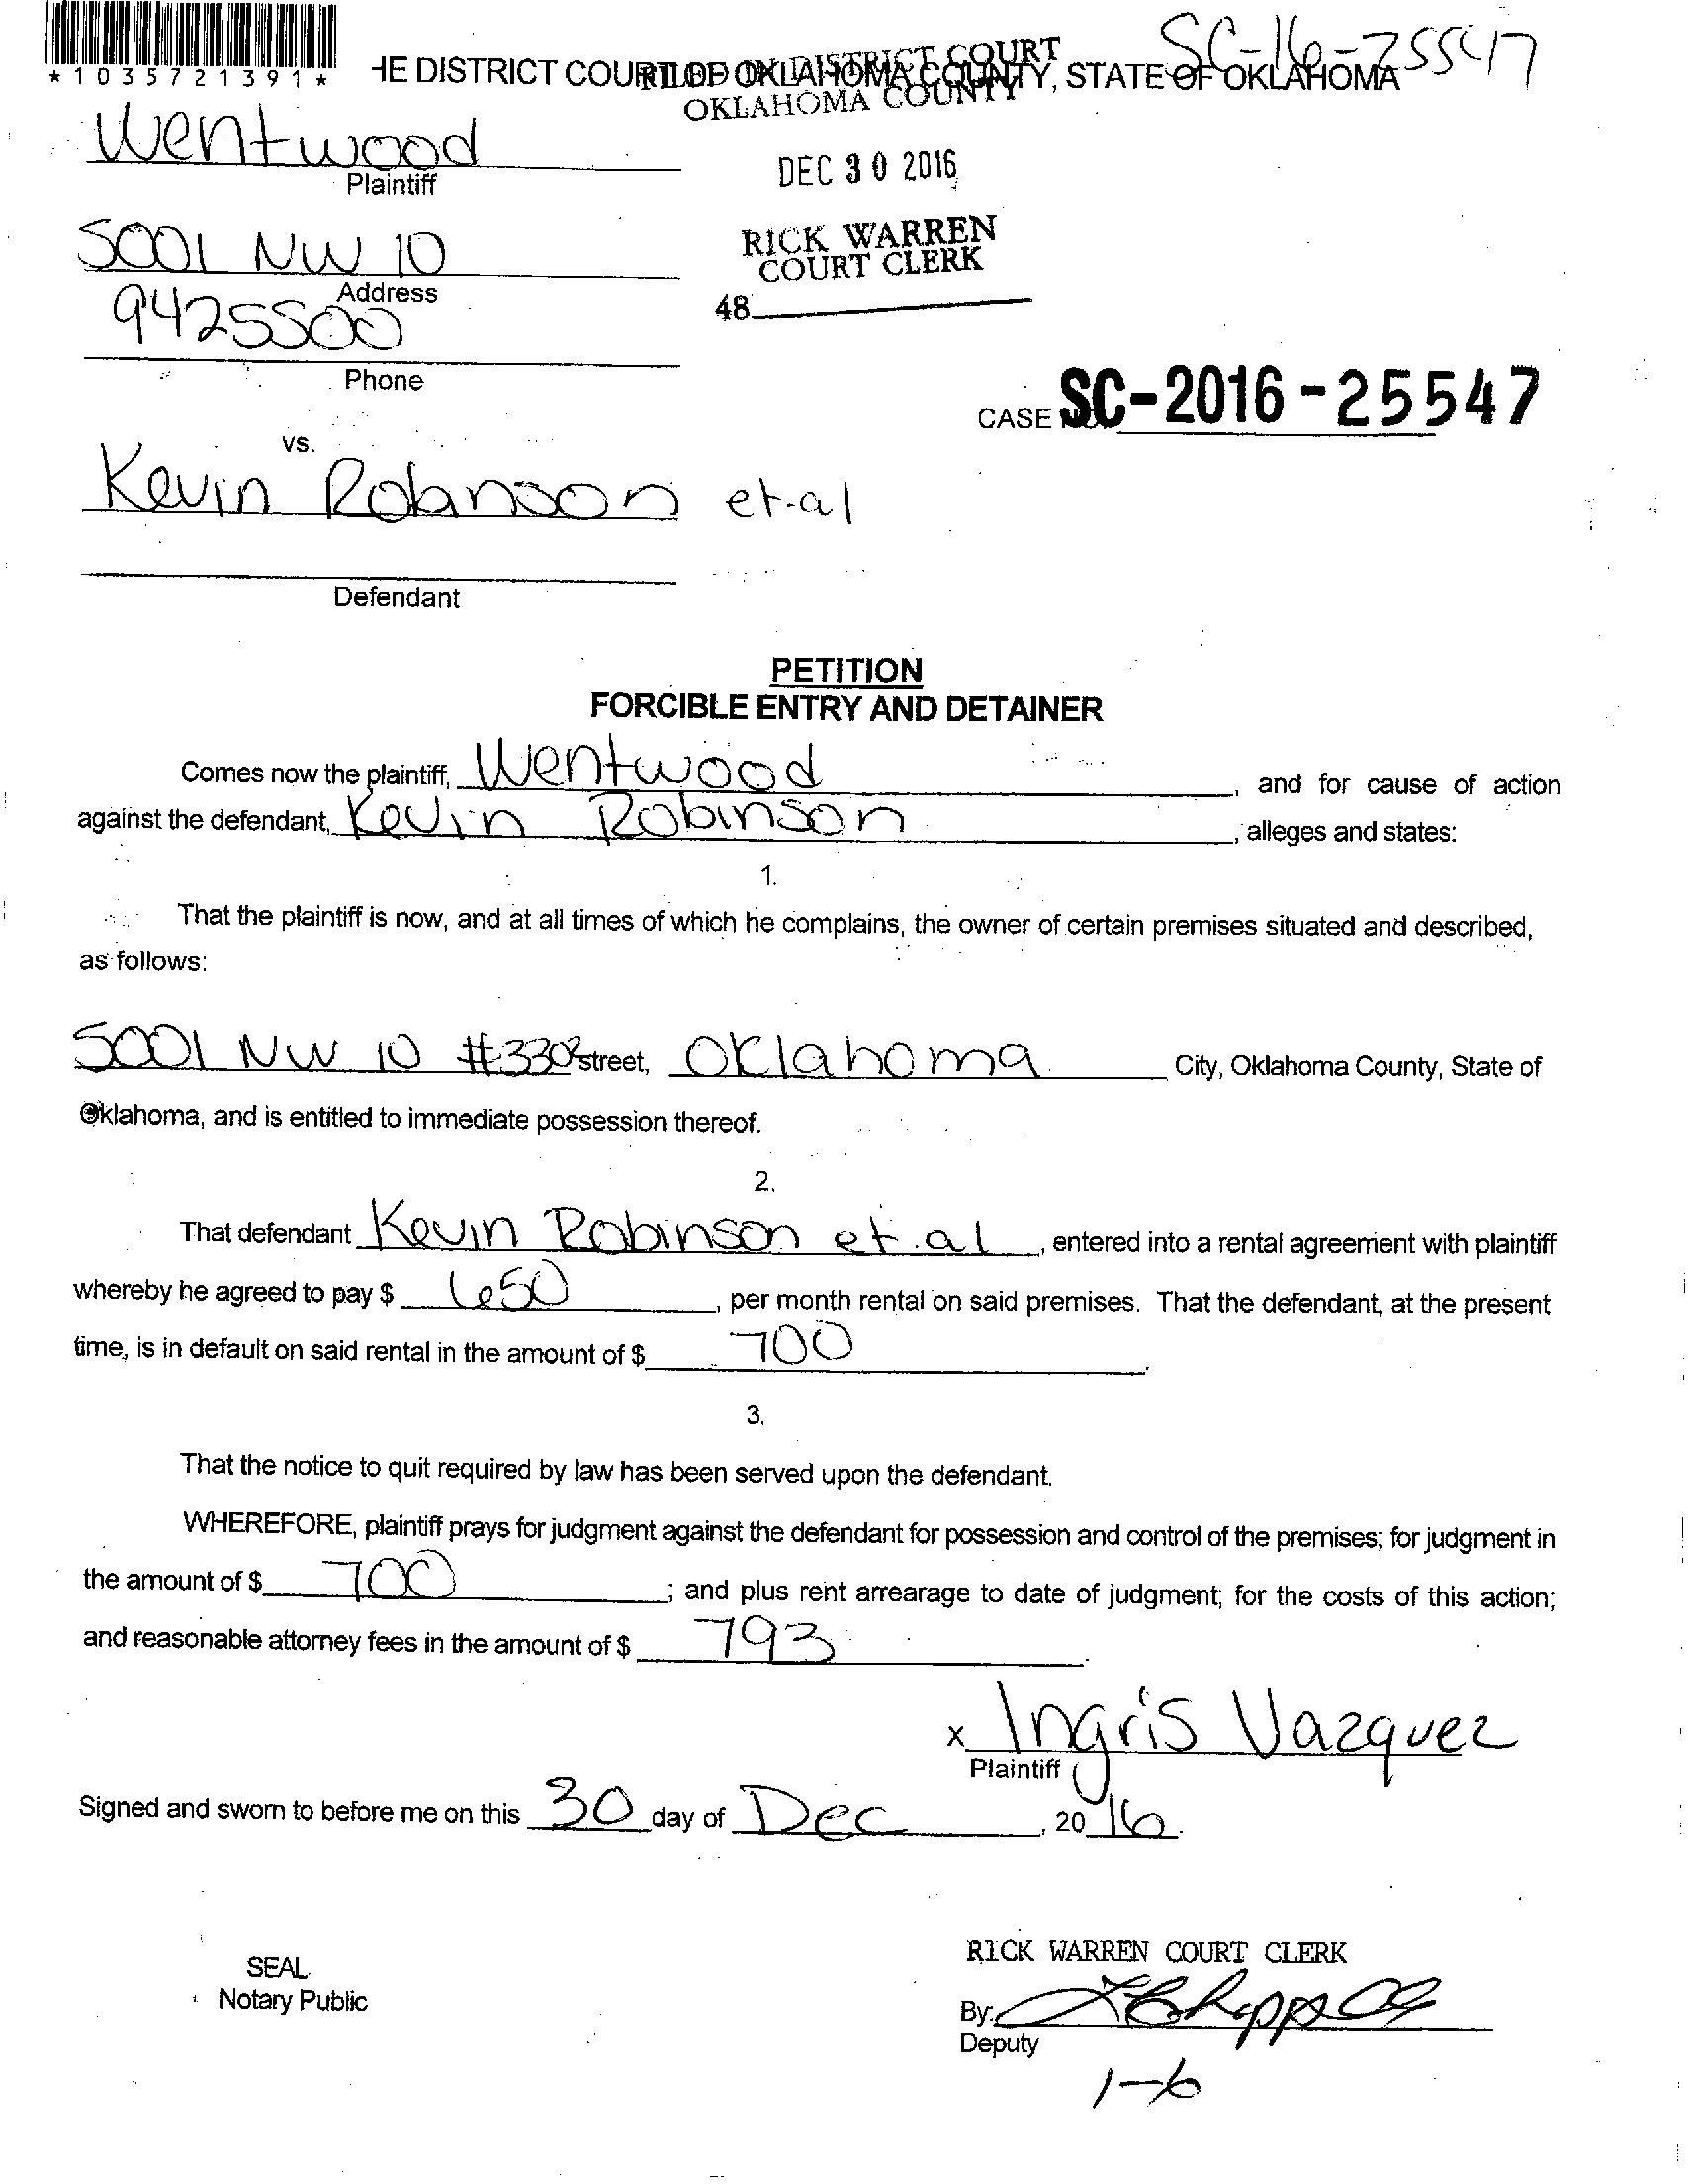 SC-16-25547
*1035721391*
HE DISTRICT COURT OF OKLAHOMA COUNTY, STATE OF OKLAHOMA
FILED IN DISTRICT COURT
OKLAHOMA COUNTY
Wentwood
Plaintiff
DEC 30 2016
5001 NW 10
Address
RICK WARREN
COURT CLERK
48
9425500
Phone
CASE NO. SC-2016-25547
vs.
Kevin Robinson et-al
Defendant
PETITION
FORCIBLE ENTRY AND DETAINER
Comes now the plaintiff, Wentwood, and for cause of action
against the defendant, Kevin Robinson, alleges and states:
1.
That the plaintiff is now, and at all times of which he complains, the owner of certain premises situated and described,
as follows:
5001 NW 10 #330 street, Oklahoma City, Oklahoma County, State of
Oklahoma, and is entitled to immediate possession thereof.
2.
That defendant Kevin Robinson et.al, entered into a rental agreement with plaintiff
whereby he agreed to pay $ 650, per month rental on said premises. That the defendant, at the present
time, is in default on said rental in the amount of $ 700.
3.
That the notice to quit required by law has been served upon the defendant.
WHEREFORE, plaintiff prays for judgment against the defendant for possession and control of the premises; for judgment in
the amount of $ 700; and plus rent arrearage to date of judgment; for the costs of this action;
and reasonable attorney fees in the amount of $ 793.
x Ingris Vazquez
Plaintiff
Signed and sworn to before me on this 30 day of Dec, 2016.
SEAL
Notary Public
RICK WARREN COURT CLERK
By:
Deputy
1-6